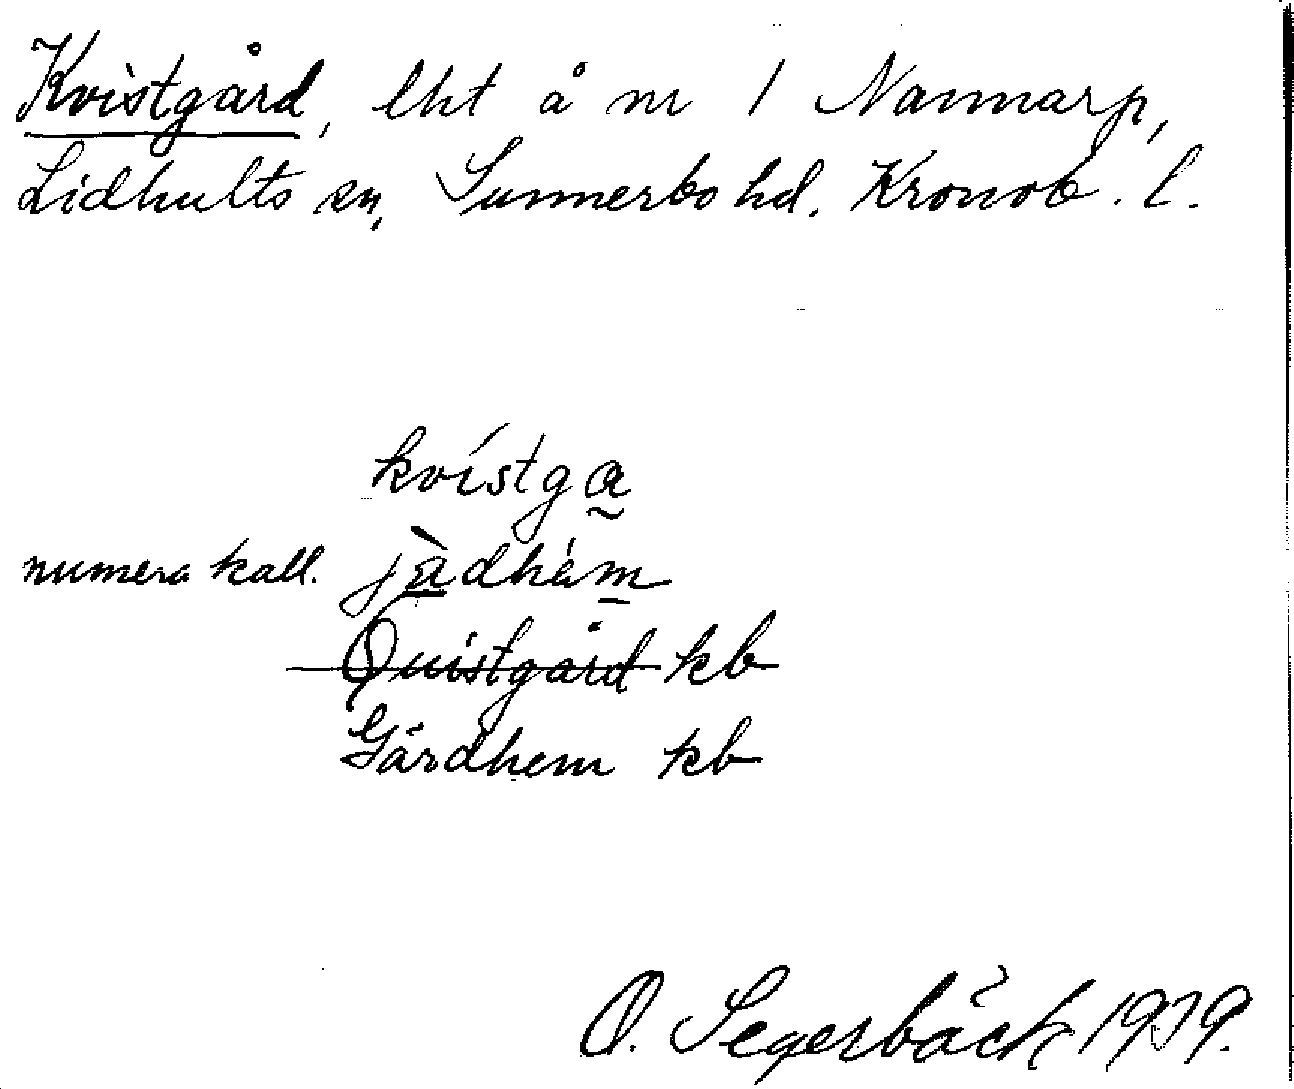 Kvistgård, lht å nr 1 Nannarp,
Lidhults sn, Sunnerbo hd. Kronob. l.
kvístga̰
numera kall. jàdhém
Quistgård kb
Gärdhem kb
O. Segerbäck 1939.